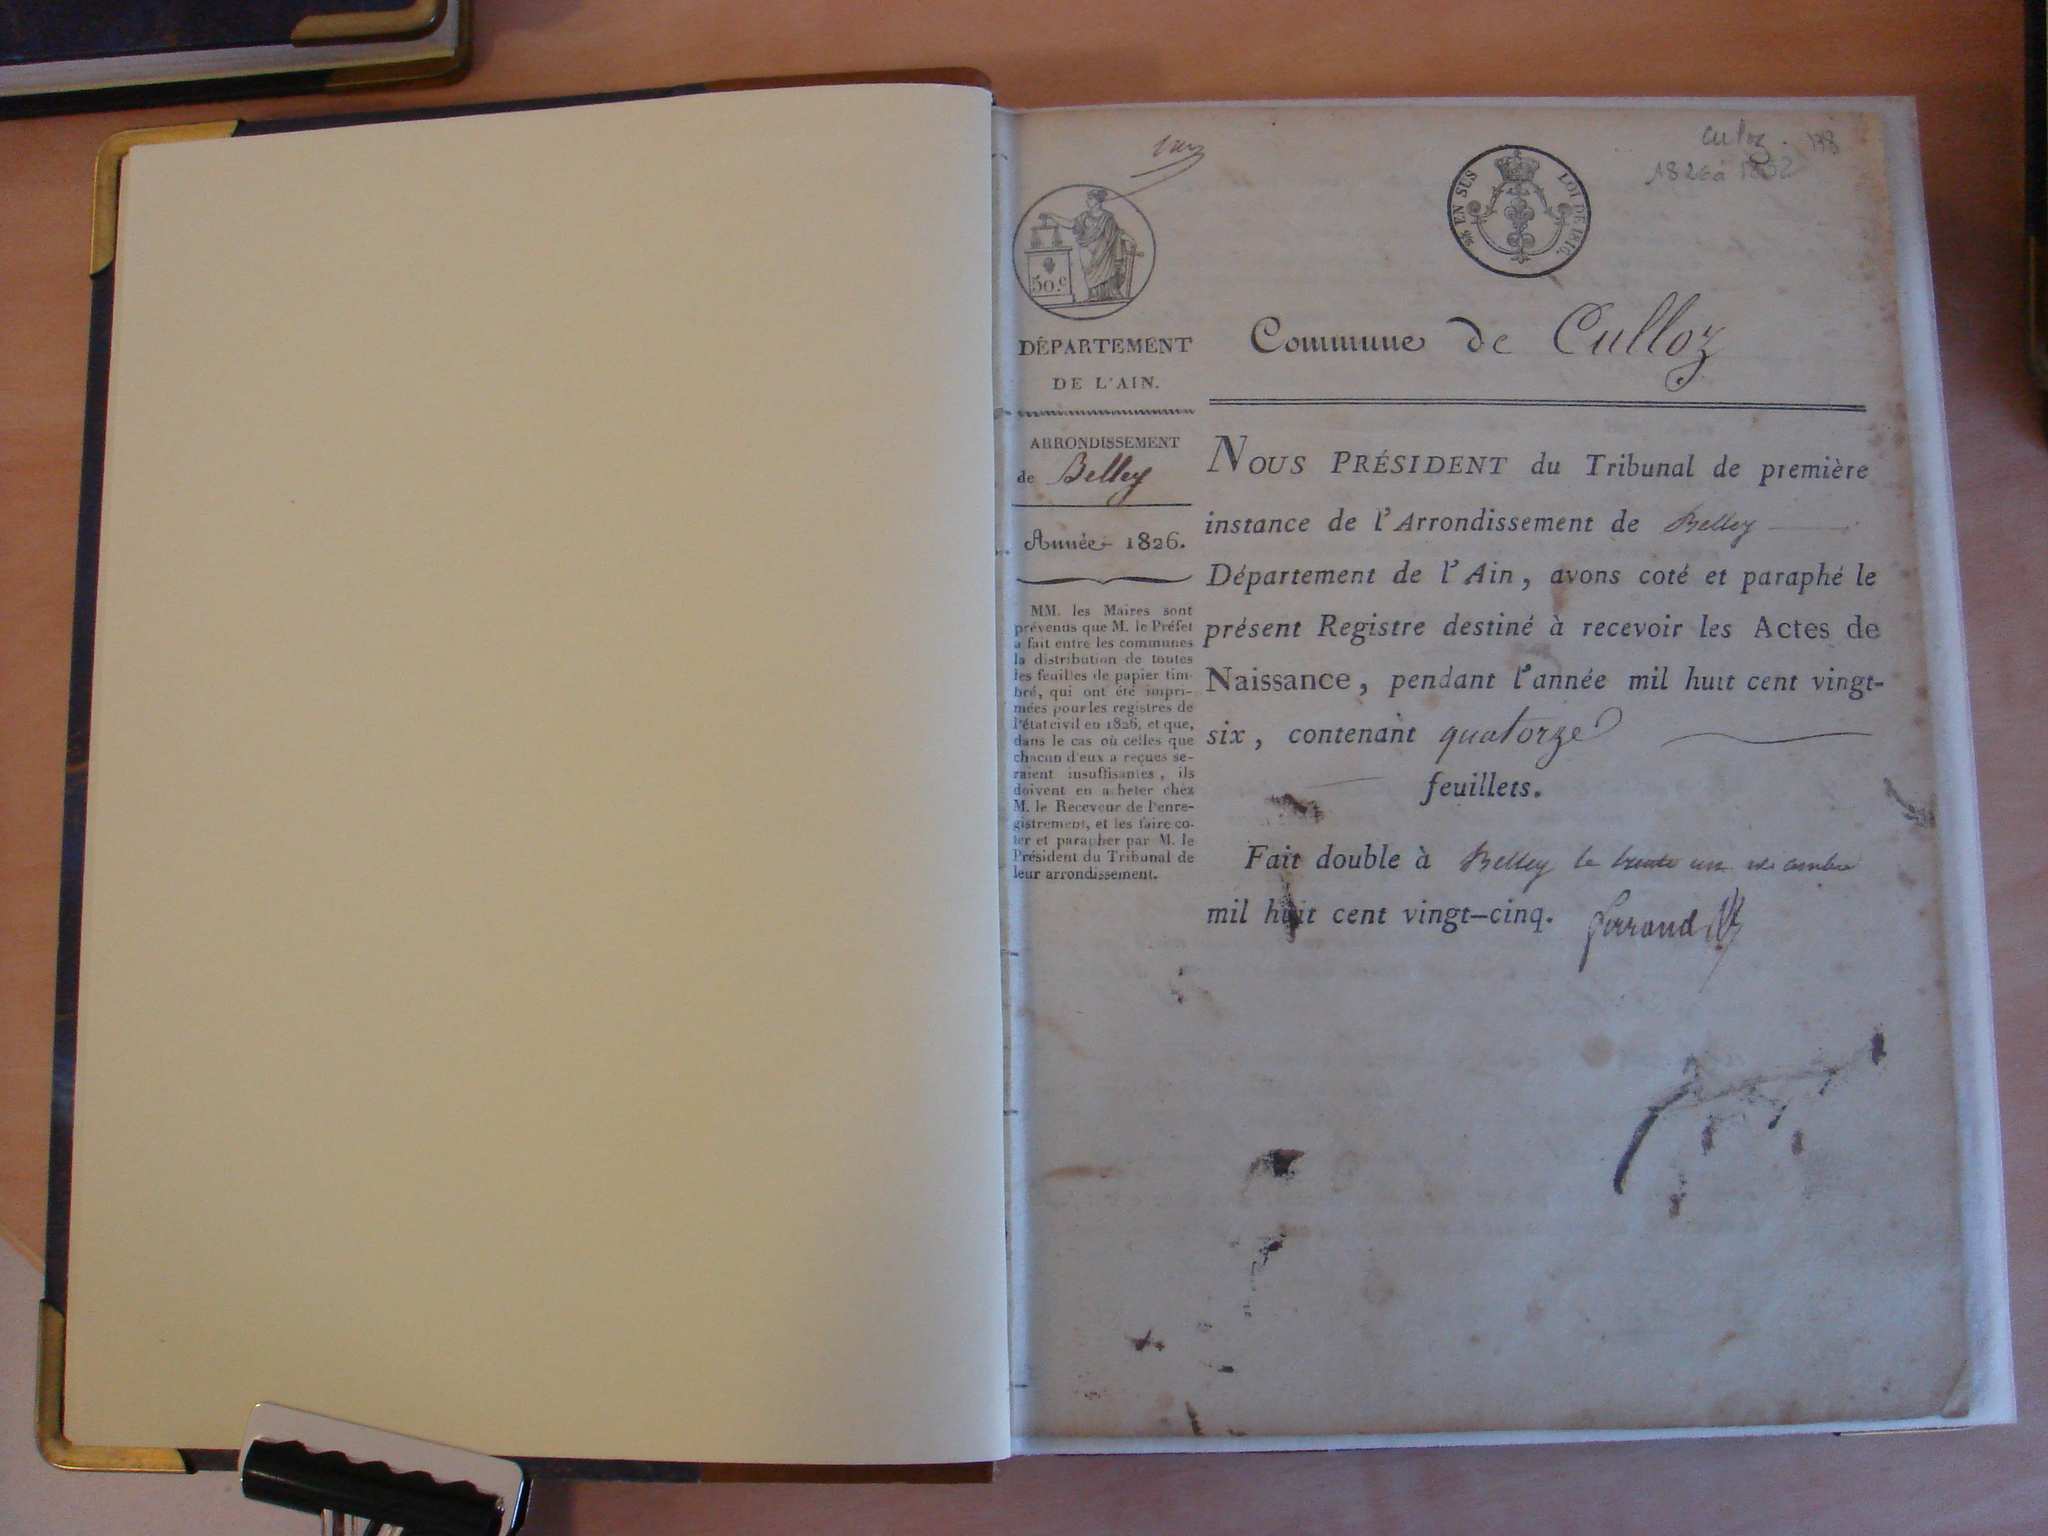 culoz. 138
1826 à 1832
un
50.c
EN SUS LOI DE 1816.
DÉPARTEMENT
DE L'AIN.
ARRONDISSEMENT
de Belley
Année 1826.
MM. les Maires sont
prévenus que M. le Préfet
a fait entre les communes
la distribution de toutes
les feuilles de papier tim-
bré, qui ont été impri-
mées pour les registres de
l'état civil en 1826, et que,
dans le cas où celles que
chacun d'eux a reçues se-
raient insuffisantes, ils
doivent en acheter chez
M. le Receveur de l'enre-
gistrement, et les faire co-
ter et parapher par M. le
Président du Tribunal de
leur arrondissement.
Commune de Culloz
NOUS PRÉSIDENT du Tribunal de première
instance de l'Arrondissement de Belley
Département de l'Ain, avons coté et paraphé le
présent Registre destiné à recevoir les Actes de
Naissance, pendant l'année mil huit cent vingt-
six, contenant quatorze
feuillets.
Fait double à Belley le trente un décembre
mil huit cent vingt-cinq.